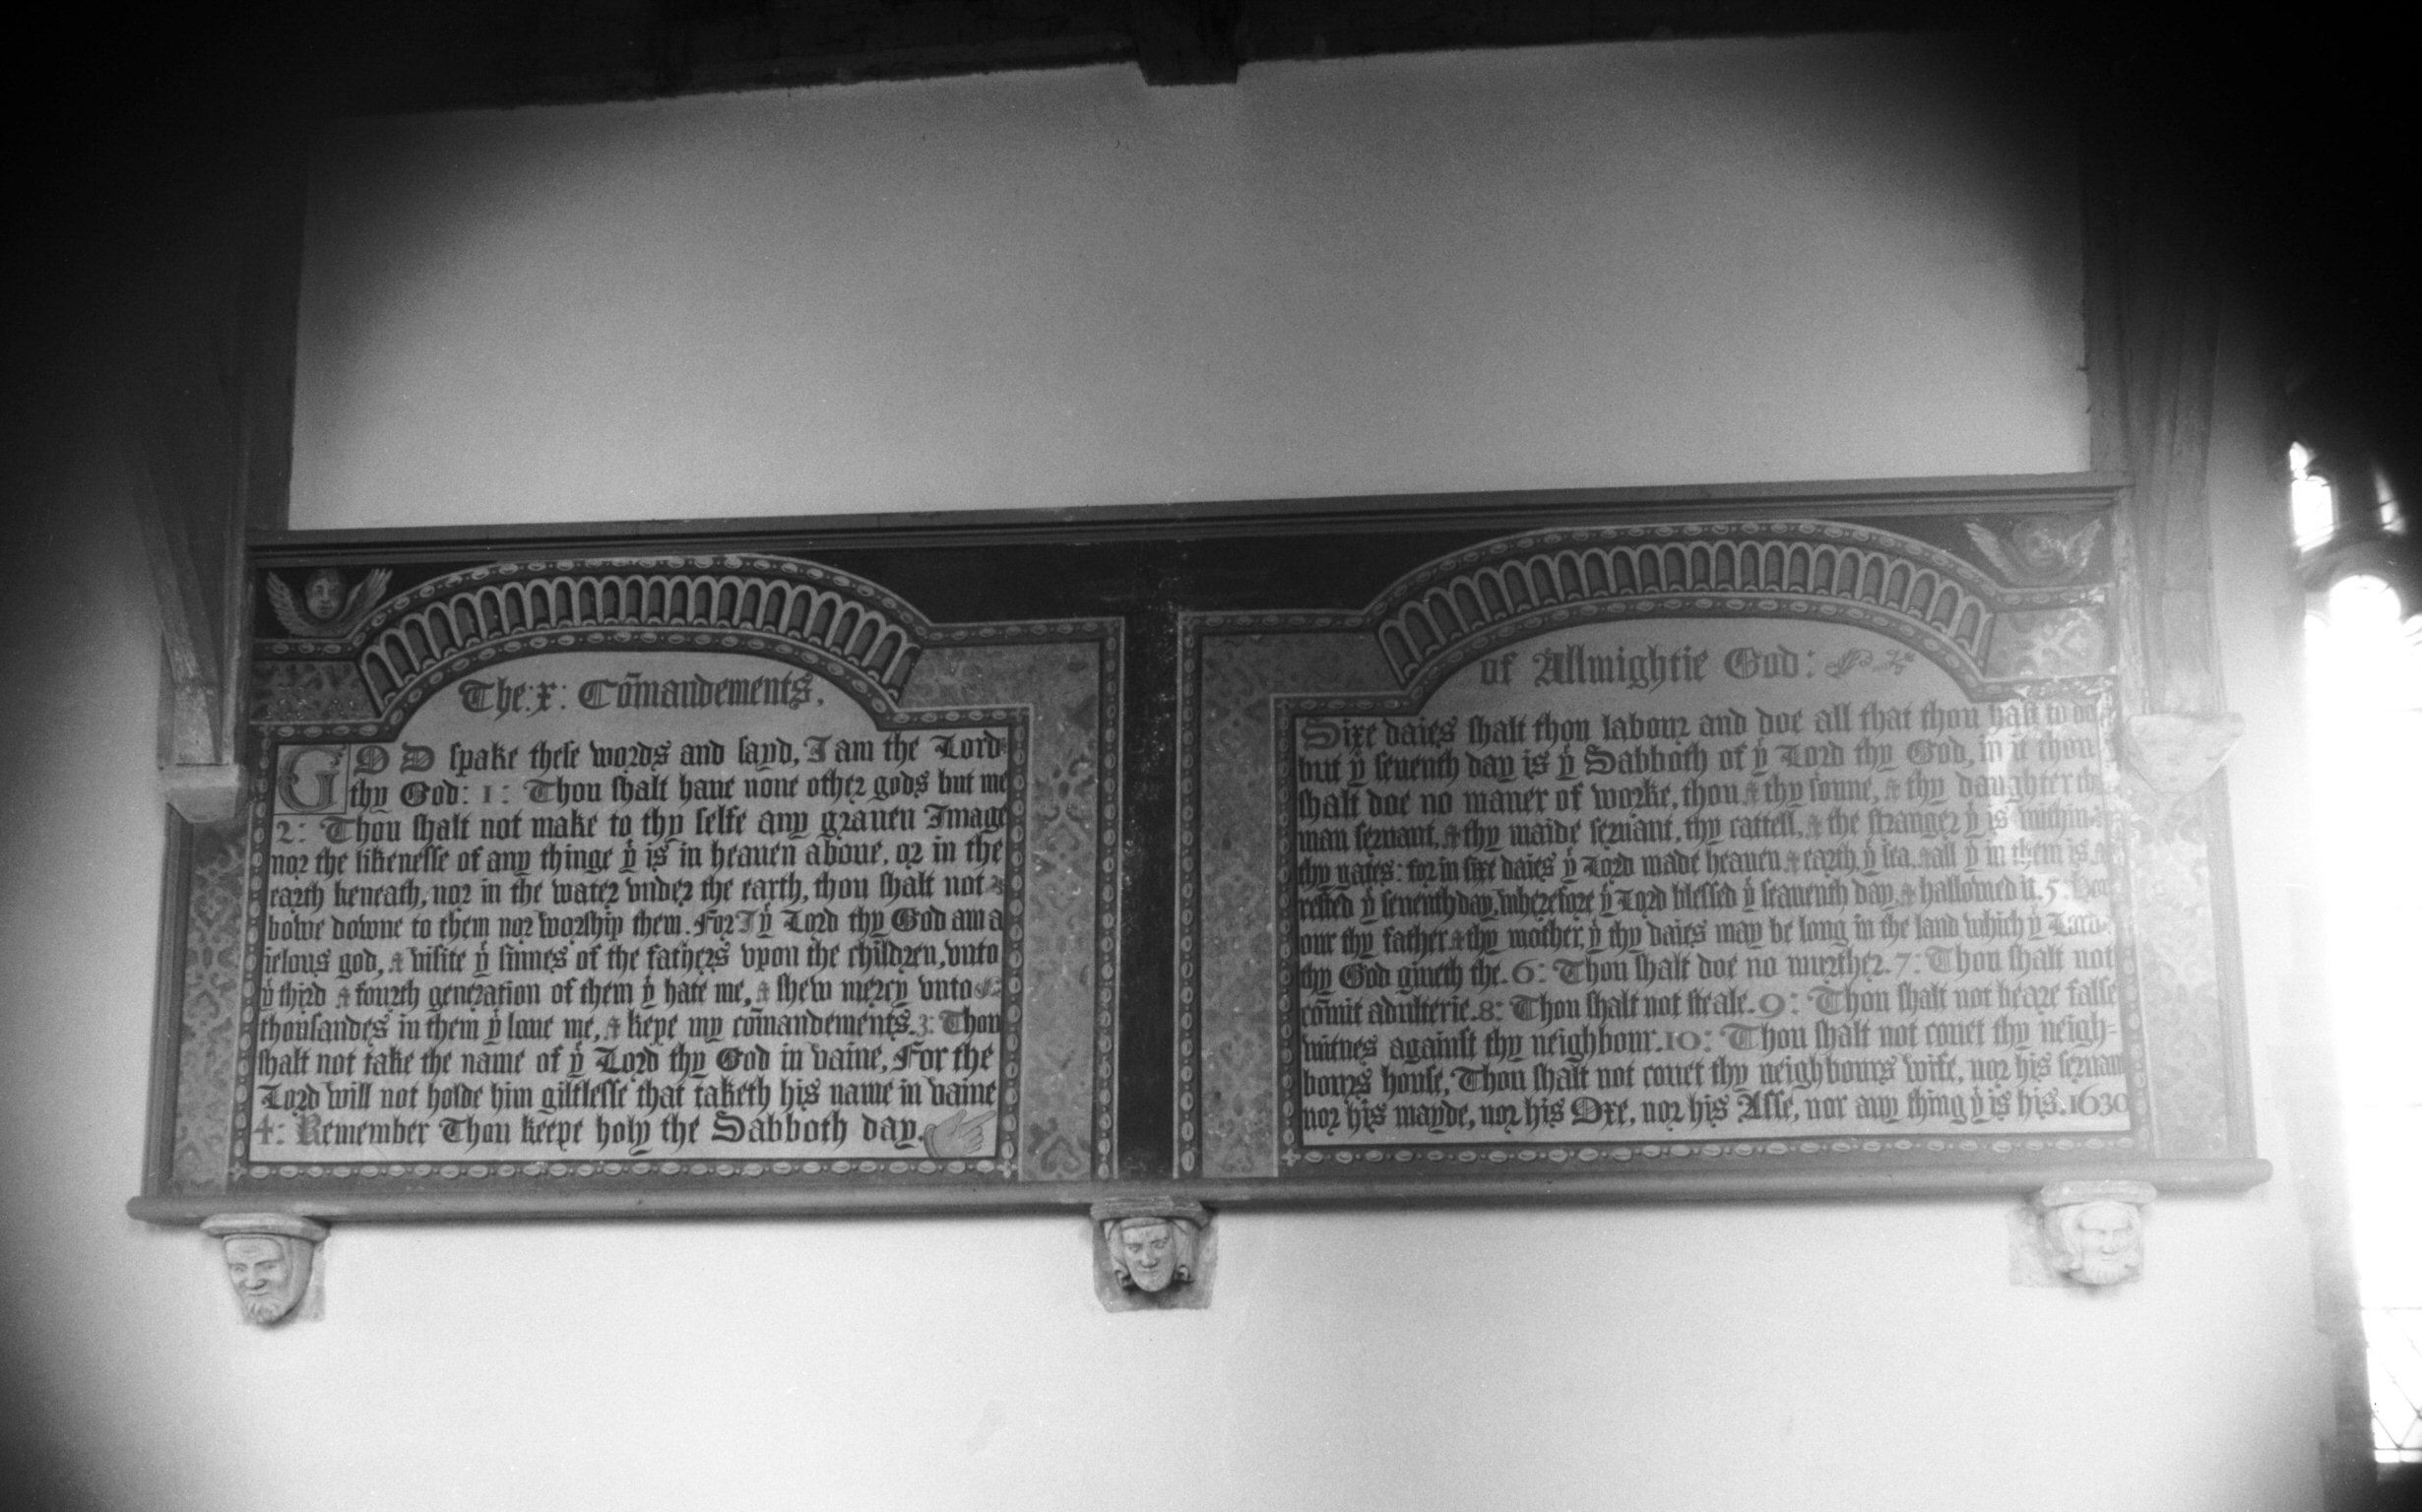 The: x: Cōmandements.
GOD spake these words and sayd, I am the Lord
thy God: 1: Thou shalt haue none other gods but me
2: Thou shalt not make to thy selfe any grauen Image
nor the likenesse of any thinge yͭ is in heauen aboue, or in the
earth beneath, nor in the water vnder the earth, thou shalt not
bowe downe to them nor worship them. For I yͤ Lord thy God am a
ielous god, & visite yͤ sinnes of the fathers vpon the children, vnto
yͤ third & fourth generation of them yͭ hate me, & shew mercy vnto
thousandes in them yͭ loue me, & kepe my cōmandements. 3: Thou
shalt not take the name of yͤ Lord thy God in vaine, For the
Lord will not holde him giltlesse that taketh his name in vaine
4: Remember Thou keepe holy the Sabboth day.
of Allmightie God:
Sixe daies shalt thou labour and doe all that thou hast to do
but yͤ seuenth day is yͤ Sabboth of yͤ Lord thy God, in it thou
shalt doe no maner of worke, thou & thy sonne, & thy daughter thy
man seruant, & thy maide seruant, thy cattell, & the stranger yͭ is within
thy gates: for in sixe daies yͤ Lord made heauen & earth, yͤ sea, & all yͭ in them is, &
rested yͤ seuenth day, wherefore yͤ Lord blessed yͤ seauenth day, & hallowed it. 5: Hon
our thy father & thy mother, yͭ thy daies may be long in the land which yͤ Lord
thy God giueth the. 6: Thou shalt doe no murther. 7: Thou shalt not
cōmit adulterie. 8: Thou shalt not steale. 9: Thou shalt not beare false
witnes against thy neighbour. 10: Thou shalt not couet thy neigh=
bours house, Thou shalt not couet thy neighbours wife, nor his seruant
nor his mayde, nor his Oxe, nor his Asse, nor any thing yͭ is his. 1630